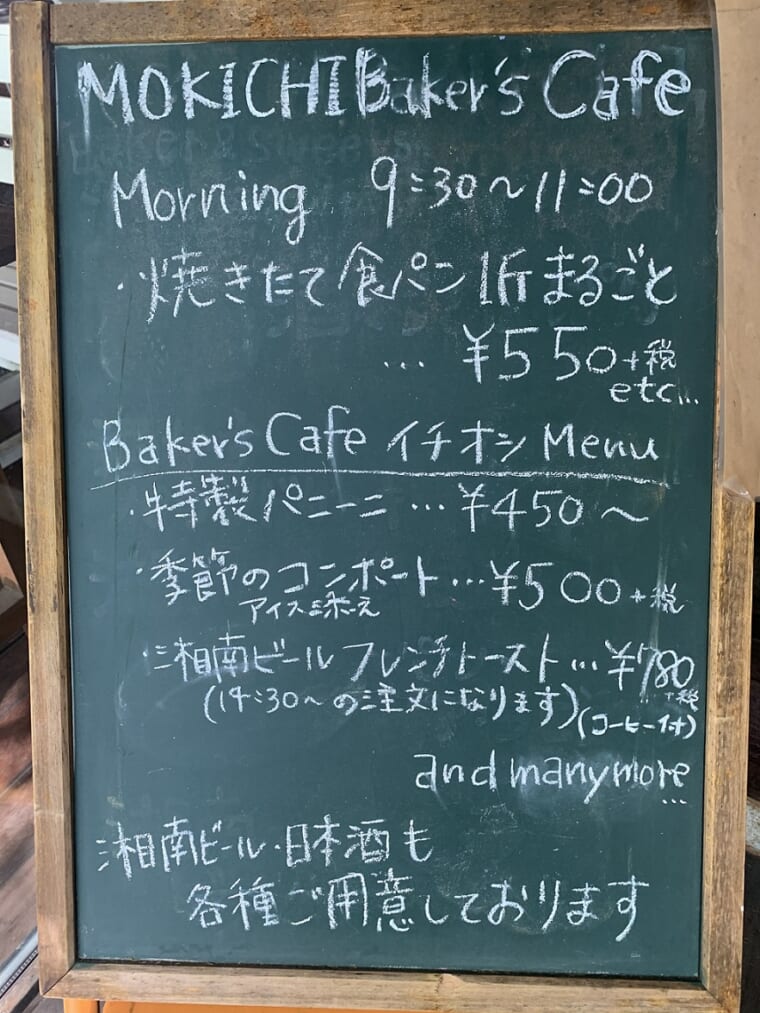 MOKICHI Baker's Cafe
Morning 9:30～11:00
・焼きたて食パン1斤まるごと
… ¥550+税
etc...
Baker's Cafe イチオシ Menu
・特製パニーニ…¥450～
・季節のコンポート…¥500+税
アイス添え
・湘南ビールフレンチトースト…¥780
+税
(14:30～の注文になります)(コーヒー付)
and many more
...
湘南ビール・日本酒も
各種ご用意しております